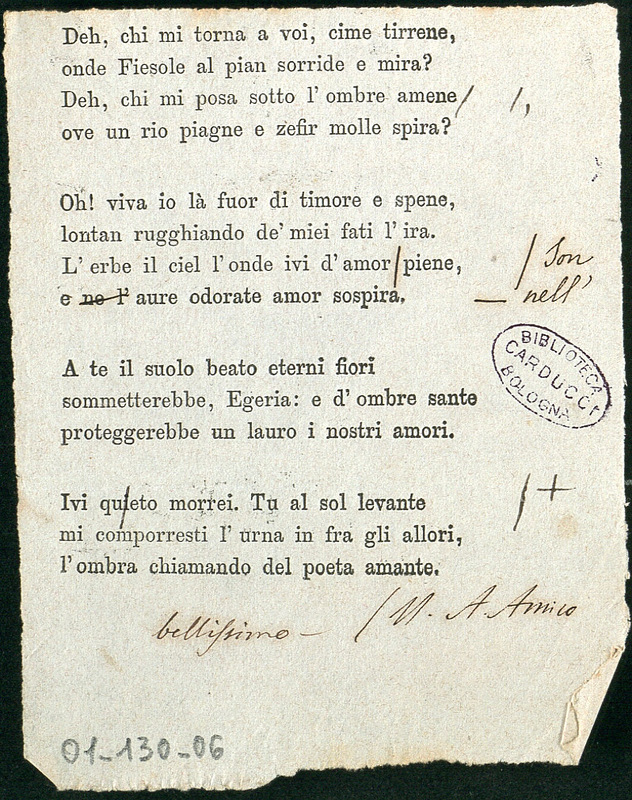 Deh, chi mi torna a voi, cime tirrene,
onde Fiesole al pian sorride e mira?
Deh, chi mi posa sotto l' ombre amene/ /,
ove un rio piagne e zefir molle spira?
Oh! viva io là fuor di timore e spene,
lontan rugghiando de' miei fati l' ira.
L' erbe il ciel l' onde ivi d' amor/piene, / Son
e ne l' aure odorate amor sospira. — nell'
BIBLIOTECA
CARDUCCI
BOLOGNA
A te il suolo beato eterni fiori
sommetterebbe, Egeria: e d' ombre sante
proteggerebbe un lauro i nostri amori.
Ivi quieto morrei. Tu al sol levante /+
mi comporresti l' urna in fra gli allori,
l' ombra chiamando del poeta amante.
bellissimo — / A. Amico
01-130-06